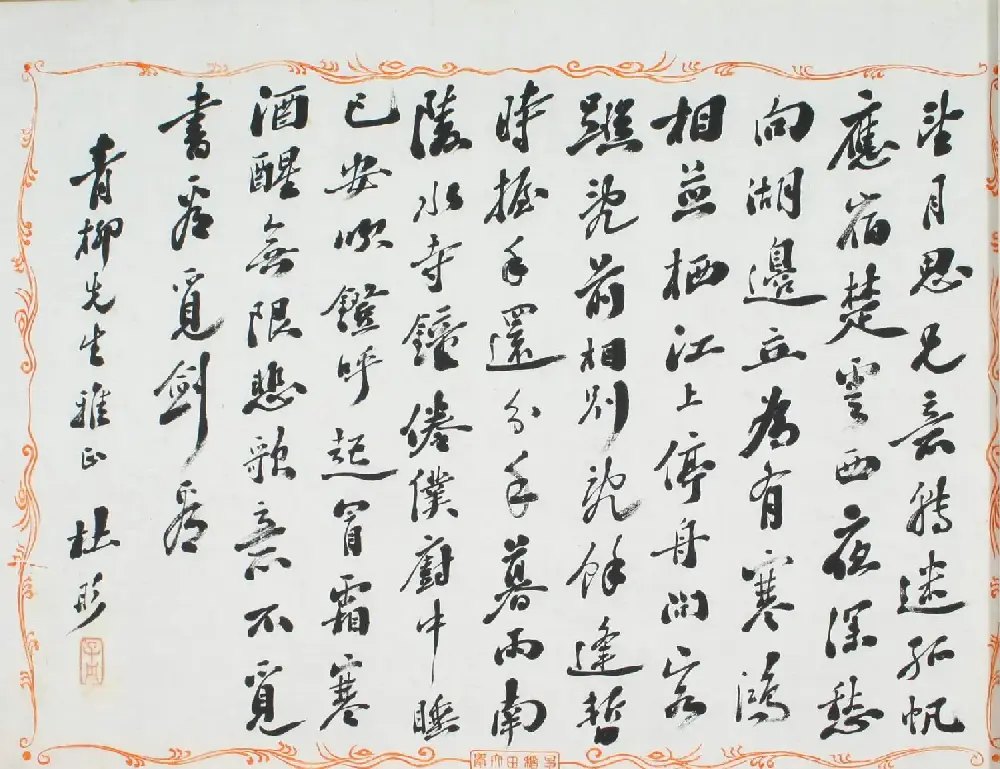 望月思兄意轉迷孤帆
應宿楚雲西夜深愁
向湖邊立為有寒鴻
相並栖江上停舟問客
蹤亂前相別亂餘逢暫
時握手還分手暮雨南
陵水寺鐘倦僕廚中睡
已安吹鐙呼起冒霜寒
酒醒無限悲歌意不覓
書看覓劍看
青柳先生雅正 杜彤